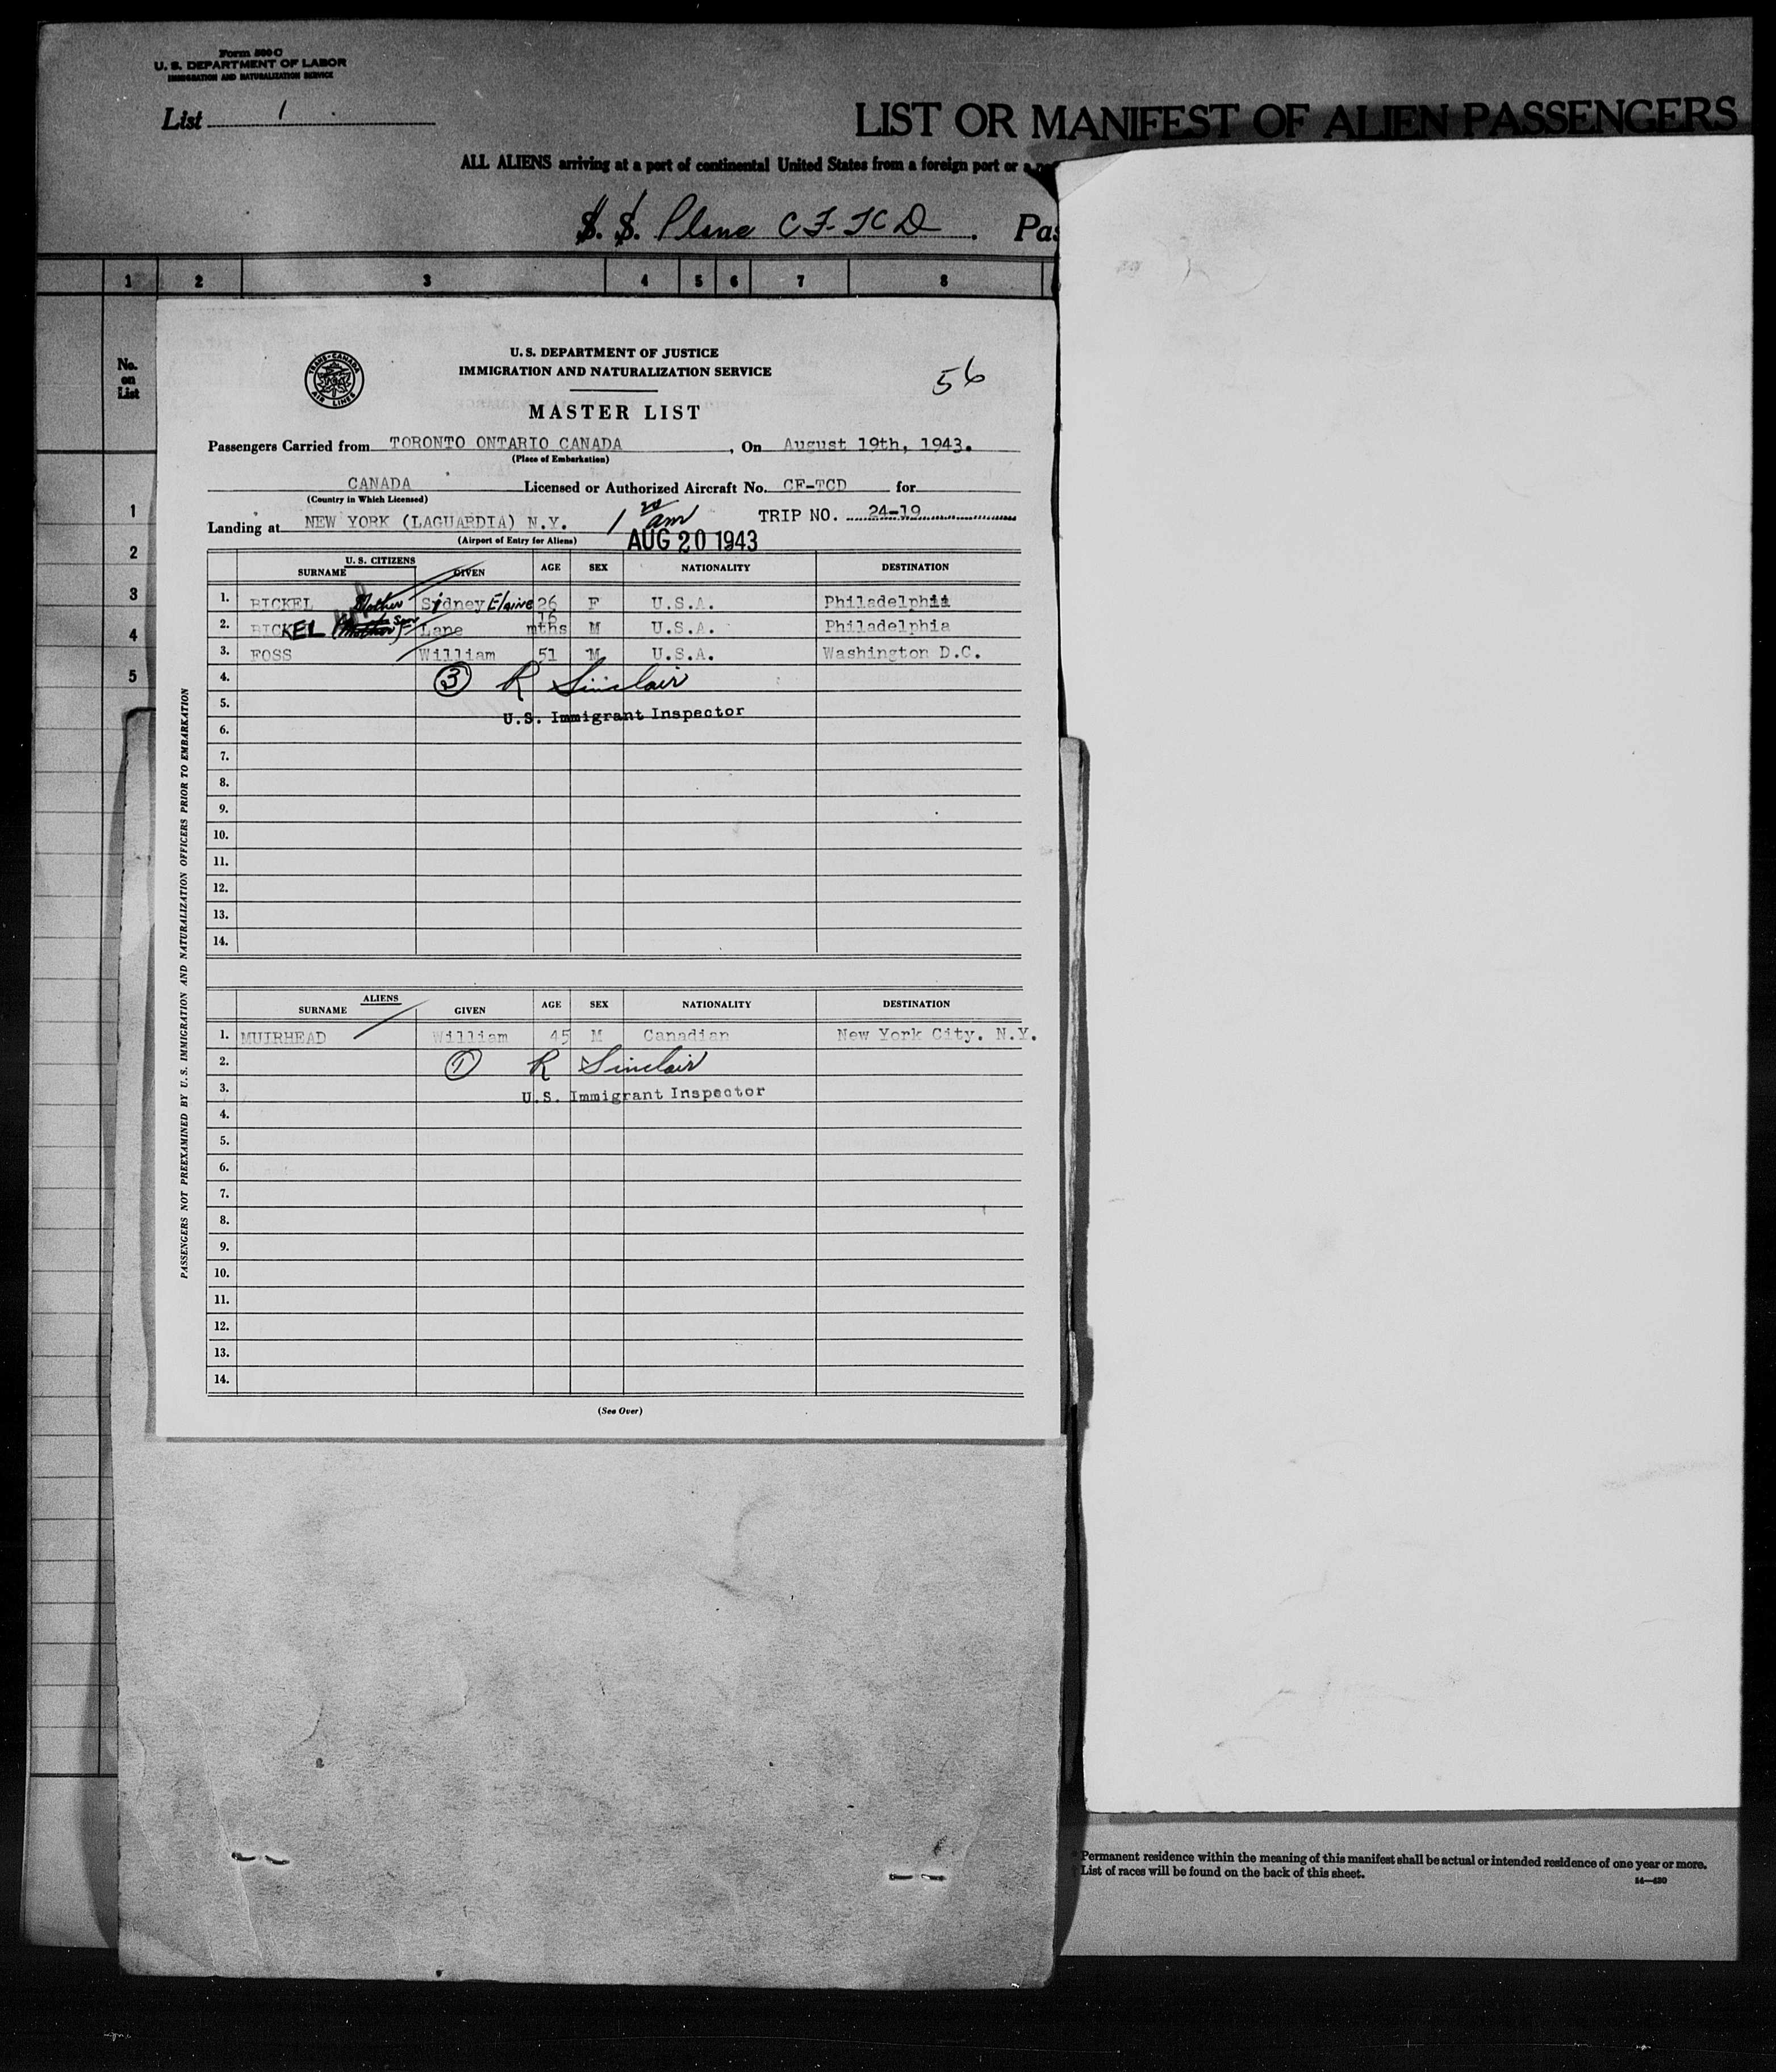 Form 500 C
U. S. DEPARTMENT OF LABOR
IMMIGRATION AND NATURALIZATION SERVICE
List 1
LIST OR MANIFEST OF ALIEN PASSENGERS
ALL ALIENS arriving at a port of continental United States from a foreign port or a
S. S. Plane CF-TCD. Pas
1 2 3 4 5 6 7 8
No. on List
1
2
3
4
5
TRANS-CANADA AIR LINES
U. S. DEPARTMENT OF JUSTICE
IMMIGRATION AND NATURALIZATION SERVICE
56
MASTER LIST
Passengers Carried from TORONTO ONTARIO CANADA, On August 19th, 1943.
(Place of Embarkation)
CANADA Licensed or Authorized Aircraft No. CF-TCD for
(Country in Which Licensed)
Landing at NEW YORK (LAGUARDIA) N.Y. 1 20 am TRIP NO. 24-19
(Airport of Entry for Aliens) AUG 20 1943
U. S. CITIZENS
SURNAME GIVEN AGE SEX NATIONALITY DESTINATION
1. BICKEL Mother Sidney Elaine 26 F U.S.A. Philadelphia
2. BICKEL Son Lane 16 mths M U.S.A. Philadelphia
3. FOSS William 51 M U.S.A. Washington D.C.
4. 3 R Sinclair
5.
U.S. Immigrant Inspector
6.
7.
8.
9.
10.
11.
12.
13.
14.
ALIENS
SURNAME GIVEN AGE SEX NATIONALITY DESTINATION
1. MUIRHEAD William 45 M Canadian New York City. N.Y.
2. 1 R Sinclair
3. U.S. Immigrant Inspector
4.
5.
6.
7.
8.
9.
10.
11.
12.
13.
14.
(See Over)
PASSENGERS NOT PREEXAMINED BY U. S. IMMIGRATION AND NATURALIZATION OFFICERS PRIOR TO EMBARKATION
* Permanent residence within the meaning of this manifest shall be actual or intended residence of one year or more.
† List of races will be found on the back of this sheet.